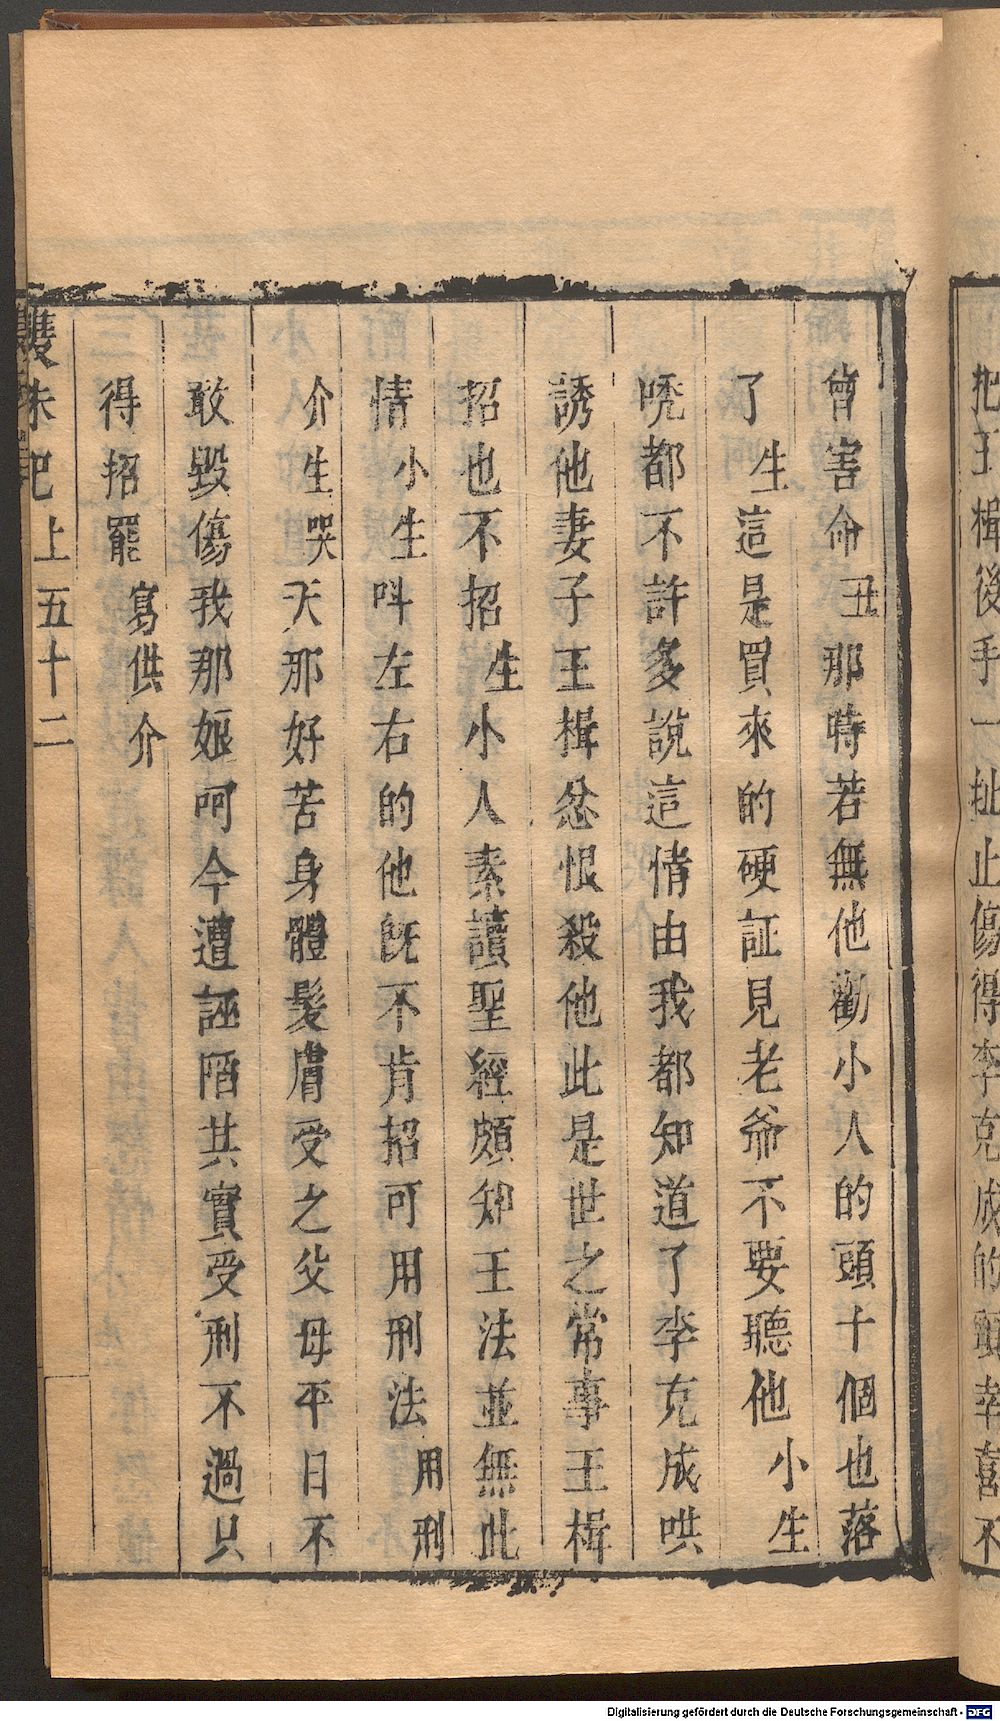 把王楫後手一扯止傷得李克成的頭幸喜不
曾害命丑那時若無他勸小人的頭十個也落
了生這是買來的硬証見老爺不要聽他小生
唗都不許多說這情由我都知道了李克成哄
誘他妻子王楫忿恨殺他此是世之常事王楫
招也不招生小人素讀聖經頗知王法並無此
情小生呌左右的他既不肯招可用刑法用刑
介生哭天那好苦身體髮膚受之父母平日不
敢毀傷我那姬呵今遭誣陷其實受刑不過只
得招罷寫供介
雙珠記上五十二
Digitalisierung gefördert durch die Deutsche Forschungsgemeinschaft - DFG